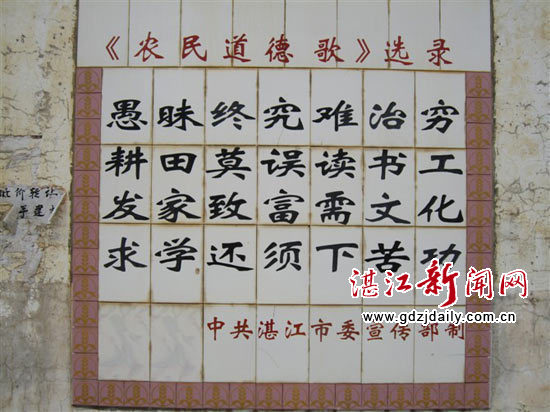 《农民道德歌》选录
愚昧终究难治穷
耕田莫误读书工
发家致富需文化
求学还须下苦功
中共湛江市委宣传部制
湛江新闻网
www.gdzjdaily.com.cn